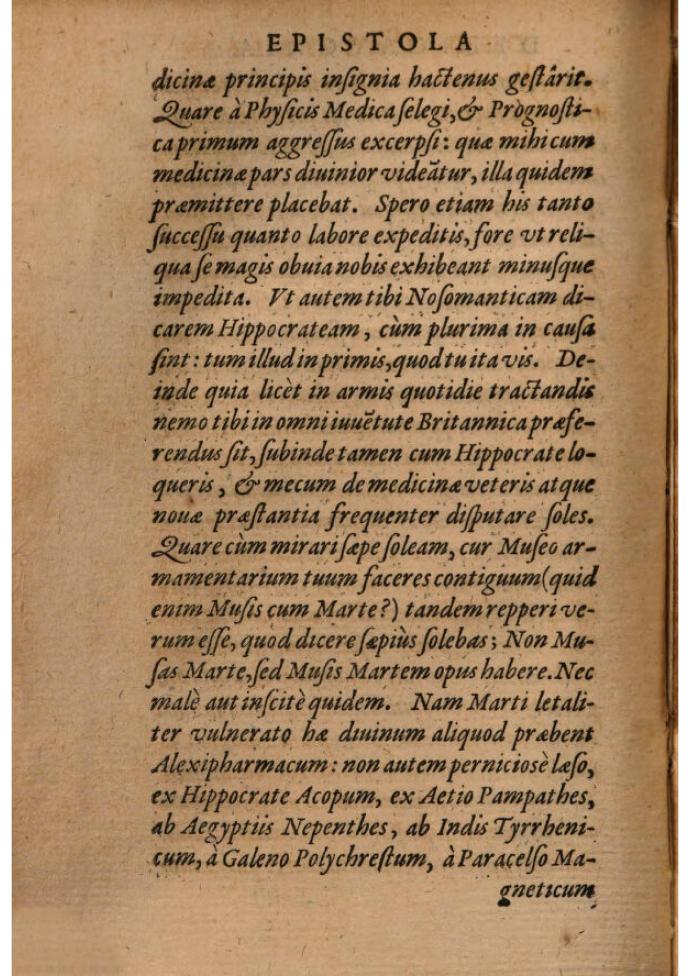 EPISTOLA
dicinæ principis inſignia hactenus geſtârit.
Quare à Phyſicis Medica ſelegi, & Prognoſti-
ca primum aggreſſus excerpſi: quæ mihi cum
medicinæ pars diuinior videãtur, illa quidem
præmittere placebat. Spero etiam his tanto
ſucceſſu quanto labore expeditis, fore vt reli-
qua ſe magis obuia nobis exhibeant minuſque
impedita. Vt autem tibi Noſomanticam di-
carem Hippocrateam, cùm plurima in cauſa
ſint: tum illud in primis, quod tu ita vis. De-
inde quia licèt in armis quotidie tractandis
nemo tibi in omni iuuẽtute Britannica præfe-
rendus ſit, ſubinde tamen cum Hippocrate lo-
queris, & mecum de medicinæ veteris atque
nouæ præſtantia frequenter diſputare ſoles.
Quare cùm mirari ſæpe ſoleam, cur Muſeo ar-
mamentarium tuum faceres contiguum (quid
enim Muſis cum Marte?) tandem repperi ve-
rum eſſe, quod dicere ſæpiùs ſolebas; Non Mu-
ſas Marte, ſed Muſis Martem opus habere. Nec
malè aut inſcitè quidem. Nam Marti letali-
ter vulnerato hæ diuinum aliquod præbent
Alexipharmacum: non autem pernicioſè læſo,
ex Hippocrate Acopum, ex Aetio Pampathes,
ab Aegyptiis Nepenthes, ab Indis Tyrrheni-
cum, à Galeno Polychreſtum, à Paracelſo Ma-
gneticum